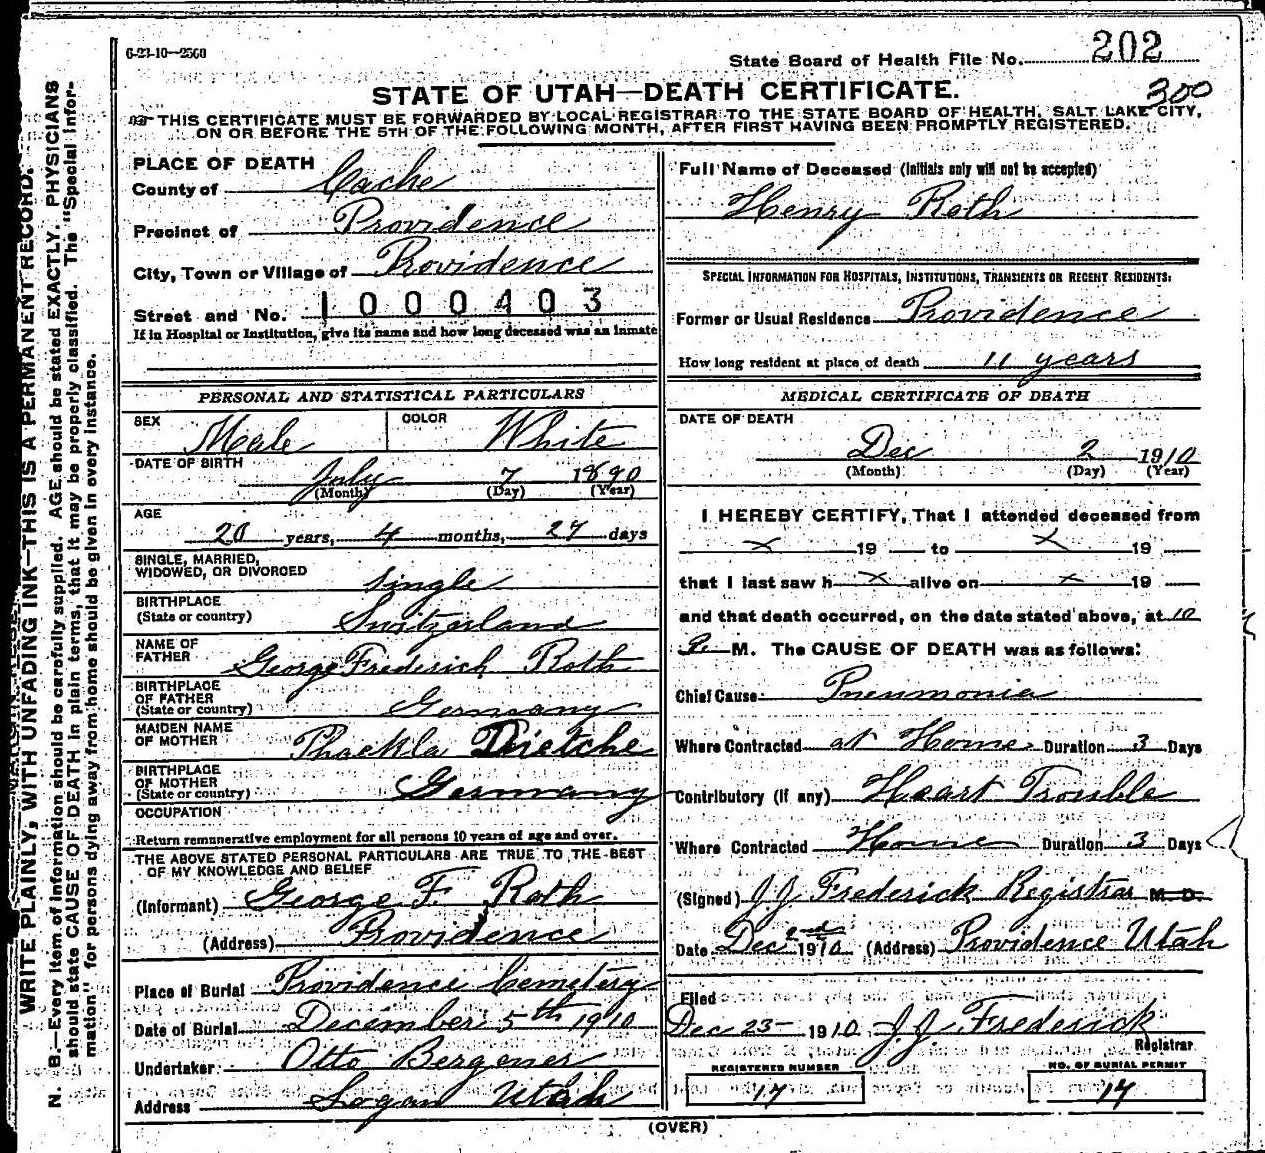 6-23-10—2500
State Board of Health File No. 202
300
STATE OF UTAH—DEATH CERTIFICATE.
THIS CERTIFICATE MUST BE FORWARDED BY LOCAL REGISTRAR TO THE STATE BOARD OF HEALTH, SALT LAKE CITY,
ON OR BEFORE THE 5TH OF THE FOLLOWING MONTH, AFTER FIRST HAVING BEEN PROMPTLY REGISTERED.
WRITE PLAINLY, WITH UNFADING INK—THIS IS A PERMANENT RECORD.
N. B.—Every item of information should be carefully supplied. AGE should be stated EXACTLY. PHYSICIANS
should state CAUSE OF DEATH in plain terms, that it may be properly classified. The "Special Infor-
mation" for persons dying away from home should be given in every instance.
PLACE OF DEATH
County of Cache
Precinct of Providence
City, Town or Village of Providence
Street and No. 1000403
If in Hospital or Institution, give its name and how long deceased was an inmate
PERSONAL AND STATISTICAL PARTICULARS
SEX Male COLOR White
DATE OF BIRTH
July 7 1890
(Month) (Day) (Year)
AGE
20 years, 4 months, 27 days
SINGLE, MARRIED,
WIDOWED, OR DIVORCED Single
BIRTHPLACE
(State or country) Switzerland
NAME OF
FATHER George Frederich Roth
BIRTHPLACE
OF FATHER
(State or country) Germany
MAIDEN NAME
OF MOTHER Thaekla Dietche
BIRTHPLACE
OF MOTHER
(State or country) Germany
OCCUPATION
Return remunerative employment for all persons 10 years of age and over.
THE ABOVE STATED PERSONAL PARTICULARS ARE TRUE TO THE BEST
OF MY KNOWLEDGE AND BELIEF
(Informant) George F. Roth
(Address) Providence
Place of Burial Providence Cemetery
Date of Burial December 5th 1910
Undertaker Otto Bergener
Address Logan Utah
Full Name of Deceased (Initials only will not be accepted)
Henry Roth
SPECIAL INFORMATION FOR HOSPITALS, INSTITUTIONS, TRANSIENTS OR RECENT RESIDENTS:
Former or Usual Residence Providence
How long resident at place of death 11 years
MEDICAL CERTIFICATE OF DEATH
DATE OF DEATH
Dec 2 1910
(Month) (Day) (Year)
I HEREBY CERTIFY, That I attended deceased from
x 19 to x 19
that I last saw h x alive on x 19
and that death occurred, on the date stated above, at 10
P. M. The CAUSE OF DEATH was as follows:
Chief Cause: Pneumonia
Where Contracted at Home Duration 3 Days
Contributory (if any) Heart Trouble
Where Contracted Home Duration 3 Days
(Signed) J J Frederick Registrar M. D.
Date Dec 2nd 1910 (Address) Providence Utah
Filed
Dec 23 1910 J. J. Frederick
Registrar
REGISTERED NUMBER
17
NO. OF BURIAL PERMIT
17
(OVER)